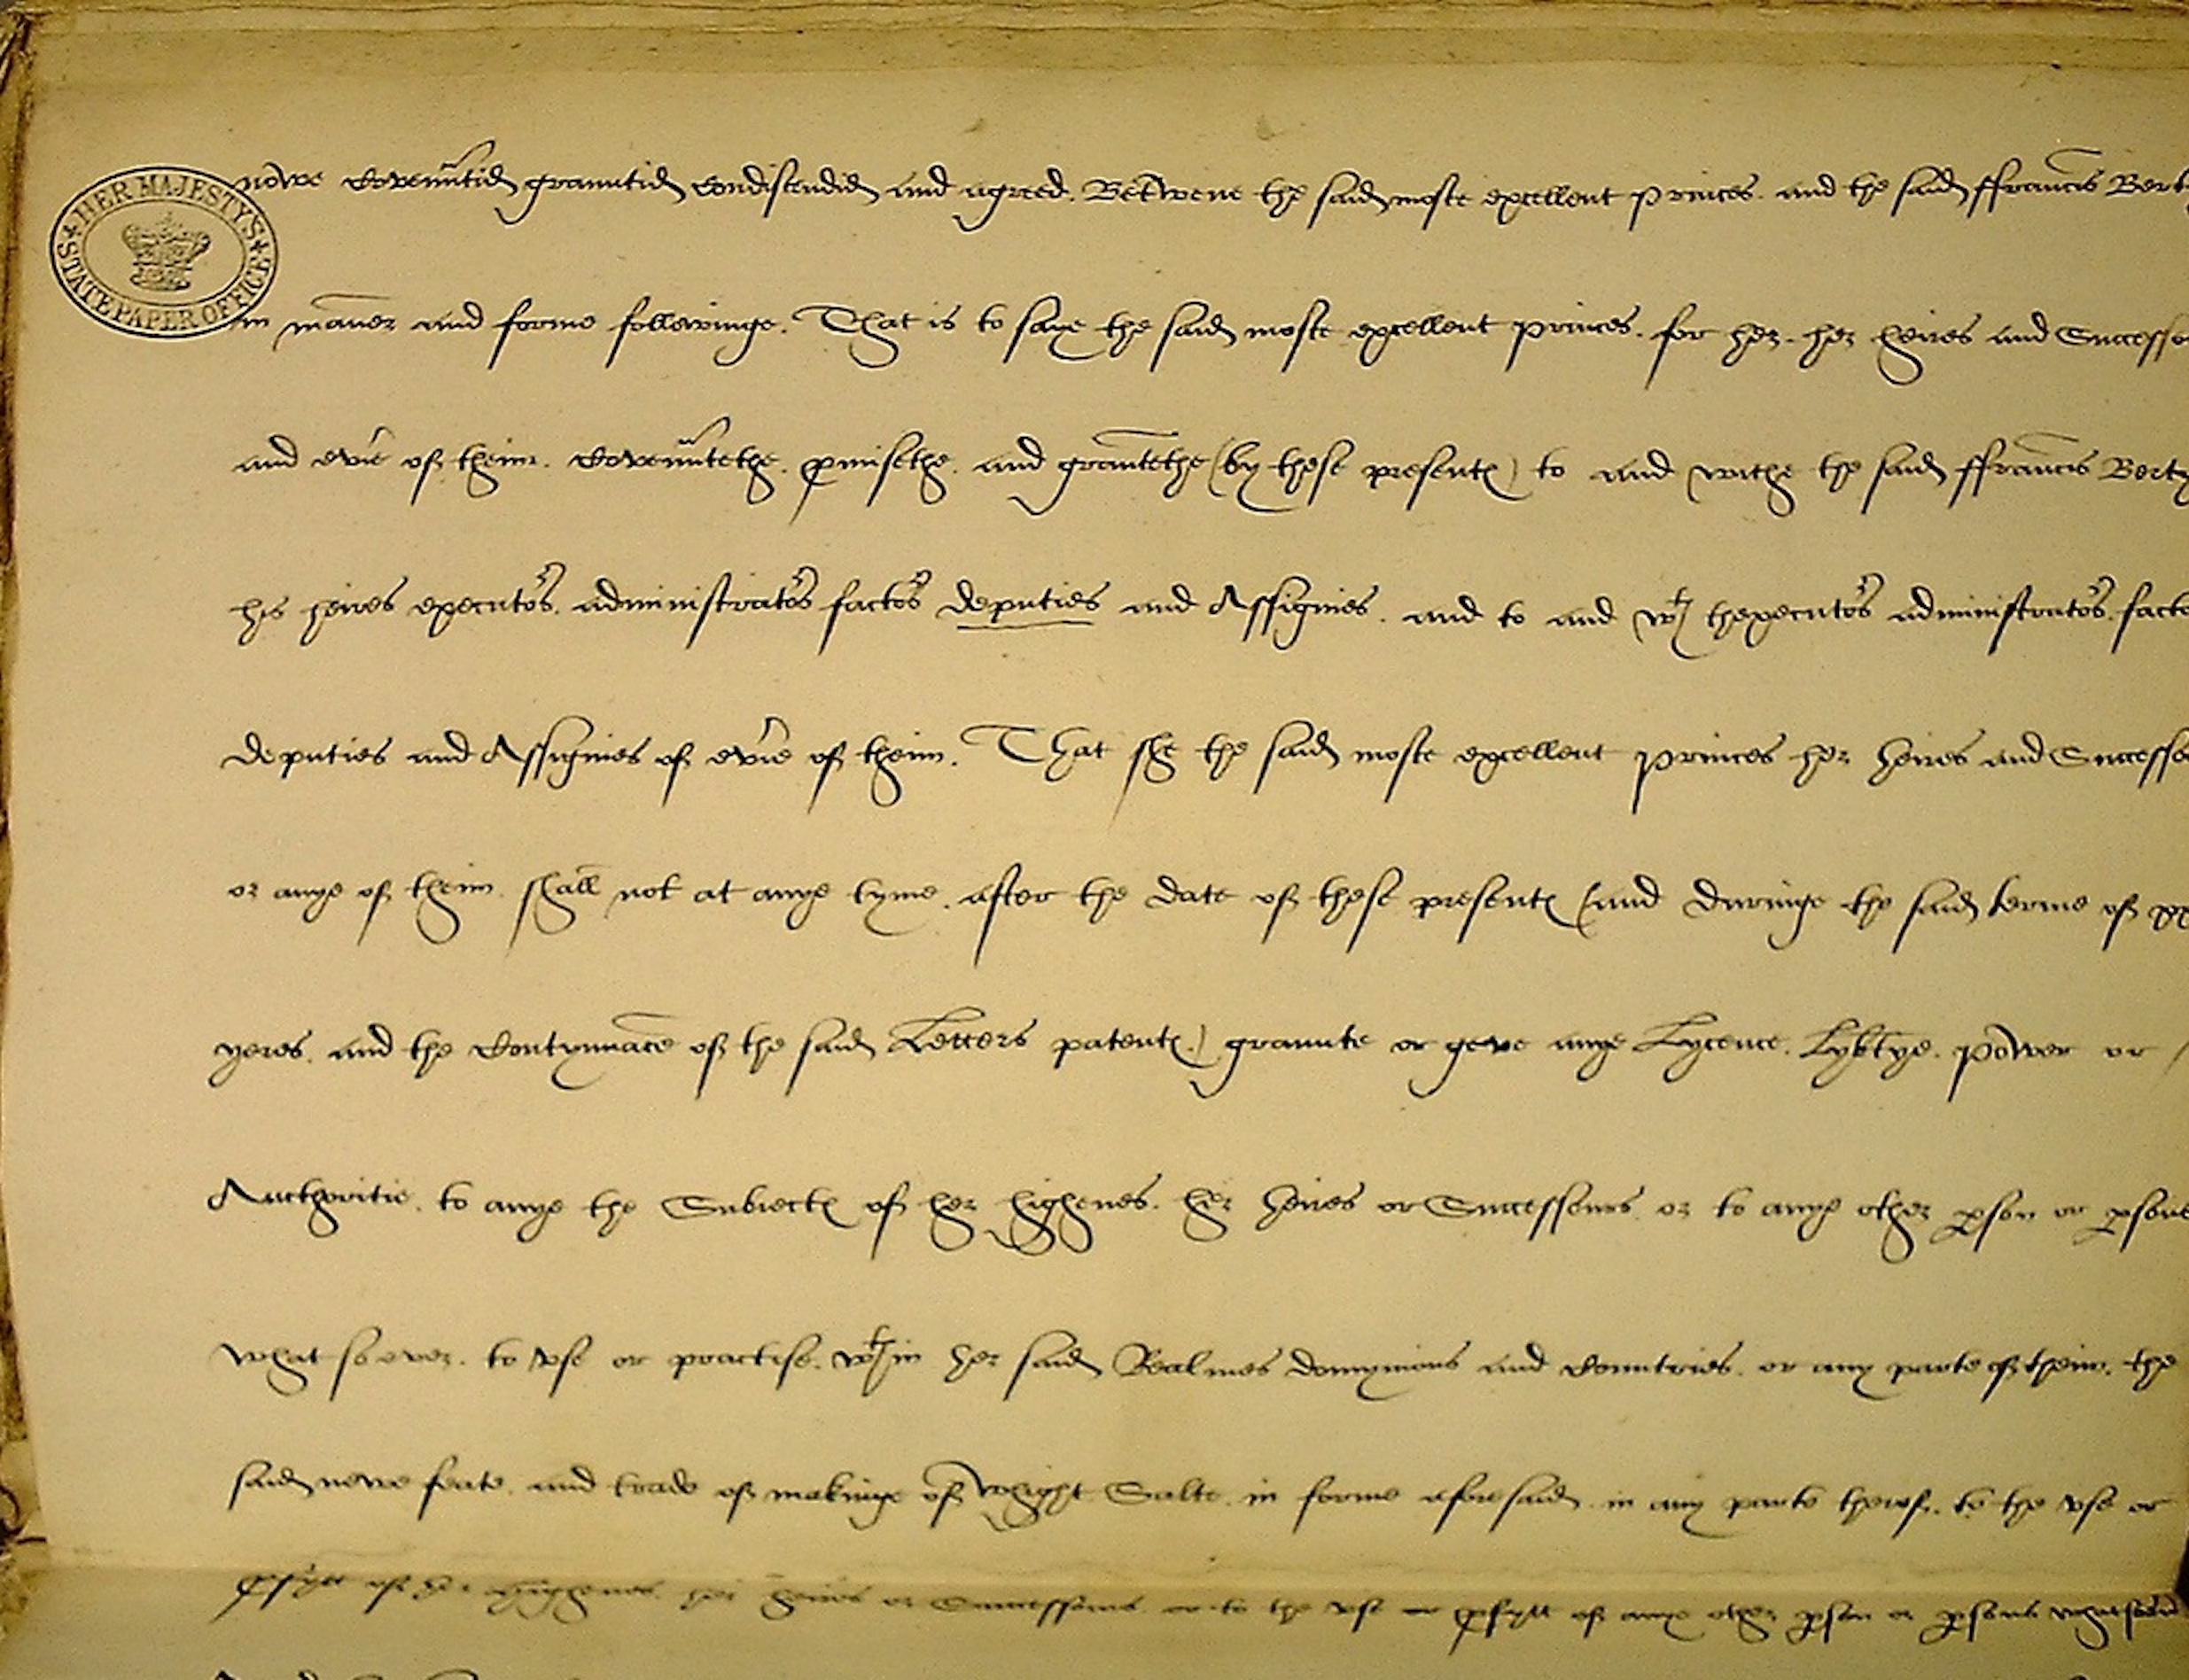 HER MAJESTY'S STATE PAPER OFFICE
nowe Covenn̄tid grauntid Condiscendid and agreed. Betwene the said moste excellent princes. and the said ffrauncis Bert
in man̄er and forme followinge. That is to saye the said moste excellent princes. for her. her heires and Successo
and ev̾ie of theim. Covenn̄tethe. ꝓmisethe. and gra̅ntethe (by these presentꝭ) to and withe the said ffra̅ncis Berty
his heires executoͬs. administratoͬs factoͬs deputies and Assignies. and to and wᵗ thexecutoͬs administratoͬs. facto
deputies and Assignies of ev̾ie of theim. That she the said moste excellent princes her heires and Successo
or anye of theim. shall not at anye tyme. after the date of these presentꝭ (and duringe the said terme of xx
yeres. and the Contynua̅ce of the said Letters patentꝭ.) graunte or geve anye Lycence. Lyb̾tye. power or
Aucthoritie. to anye the Subiectꝭ of her highenes. her heires or Successours. or to anye other ꝑson or ꝑsone
what so ever. to vse or practise. wᵗin her said Realmes domynions and Countries. or any parte of theim. the
said newe feate. and trade of makinge of whight Salte. in forme aforesaid. in any parte therof. to the vse or
ꝓfytt of her highenes. her heires or Successours. or to the vse or ꝓfytt of anye other ꝑson or ꝑsons whatsoev̾